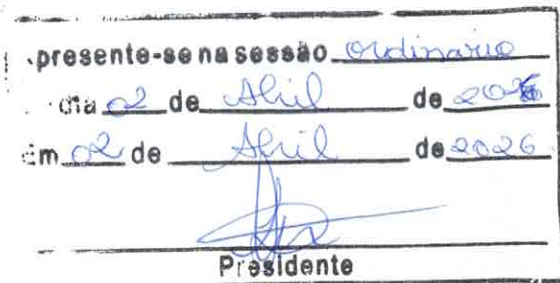 presente-se na sessão Ordinaria
dia 02 de Abril de 2026
Em 02 de Abril de 2026
Presidente